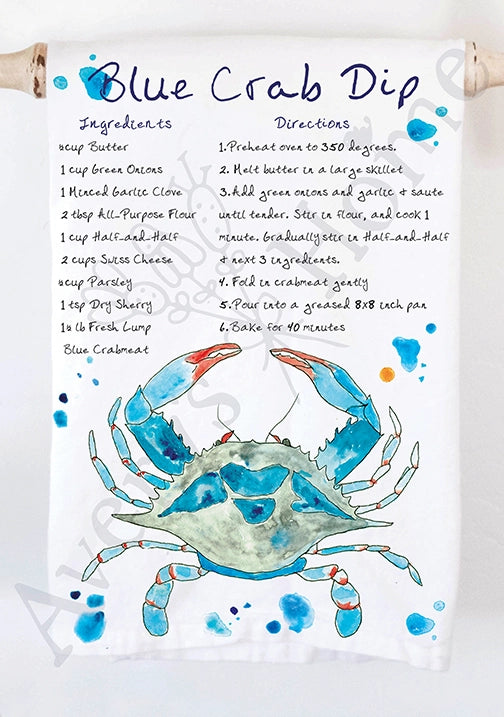 Blue Crab Dip
Ingredients
cup Butter
1 cup Green Onions
1 Minced Garlic Clove
2 tbsp All-Purpose Flour
1 cup Half-and-Half
2 cups Swiss Cheese
cup Parsley
1 tsp Dry Sherry
lb Fresh Lump
Blue Crabmeat
Directions
1. Preheat oven to 350 degrees.
2. Melt butter in a large skillet
3. Add green onions and garlic & saute
until tender. Stir in flour, and cook 1
minute. Gradually stir in Half-and-Half
& next 3 ingredients.
4. Fold in crabmeat gently
5. Pour into a greased 8x8 inch pan
6. Bake for 40 minutes
Home